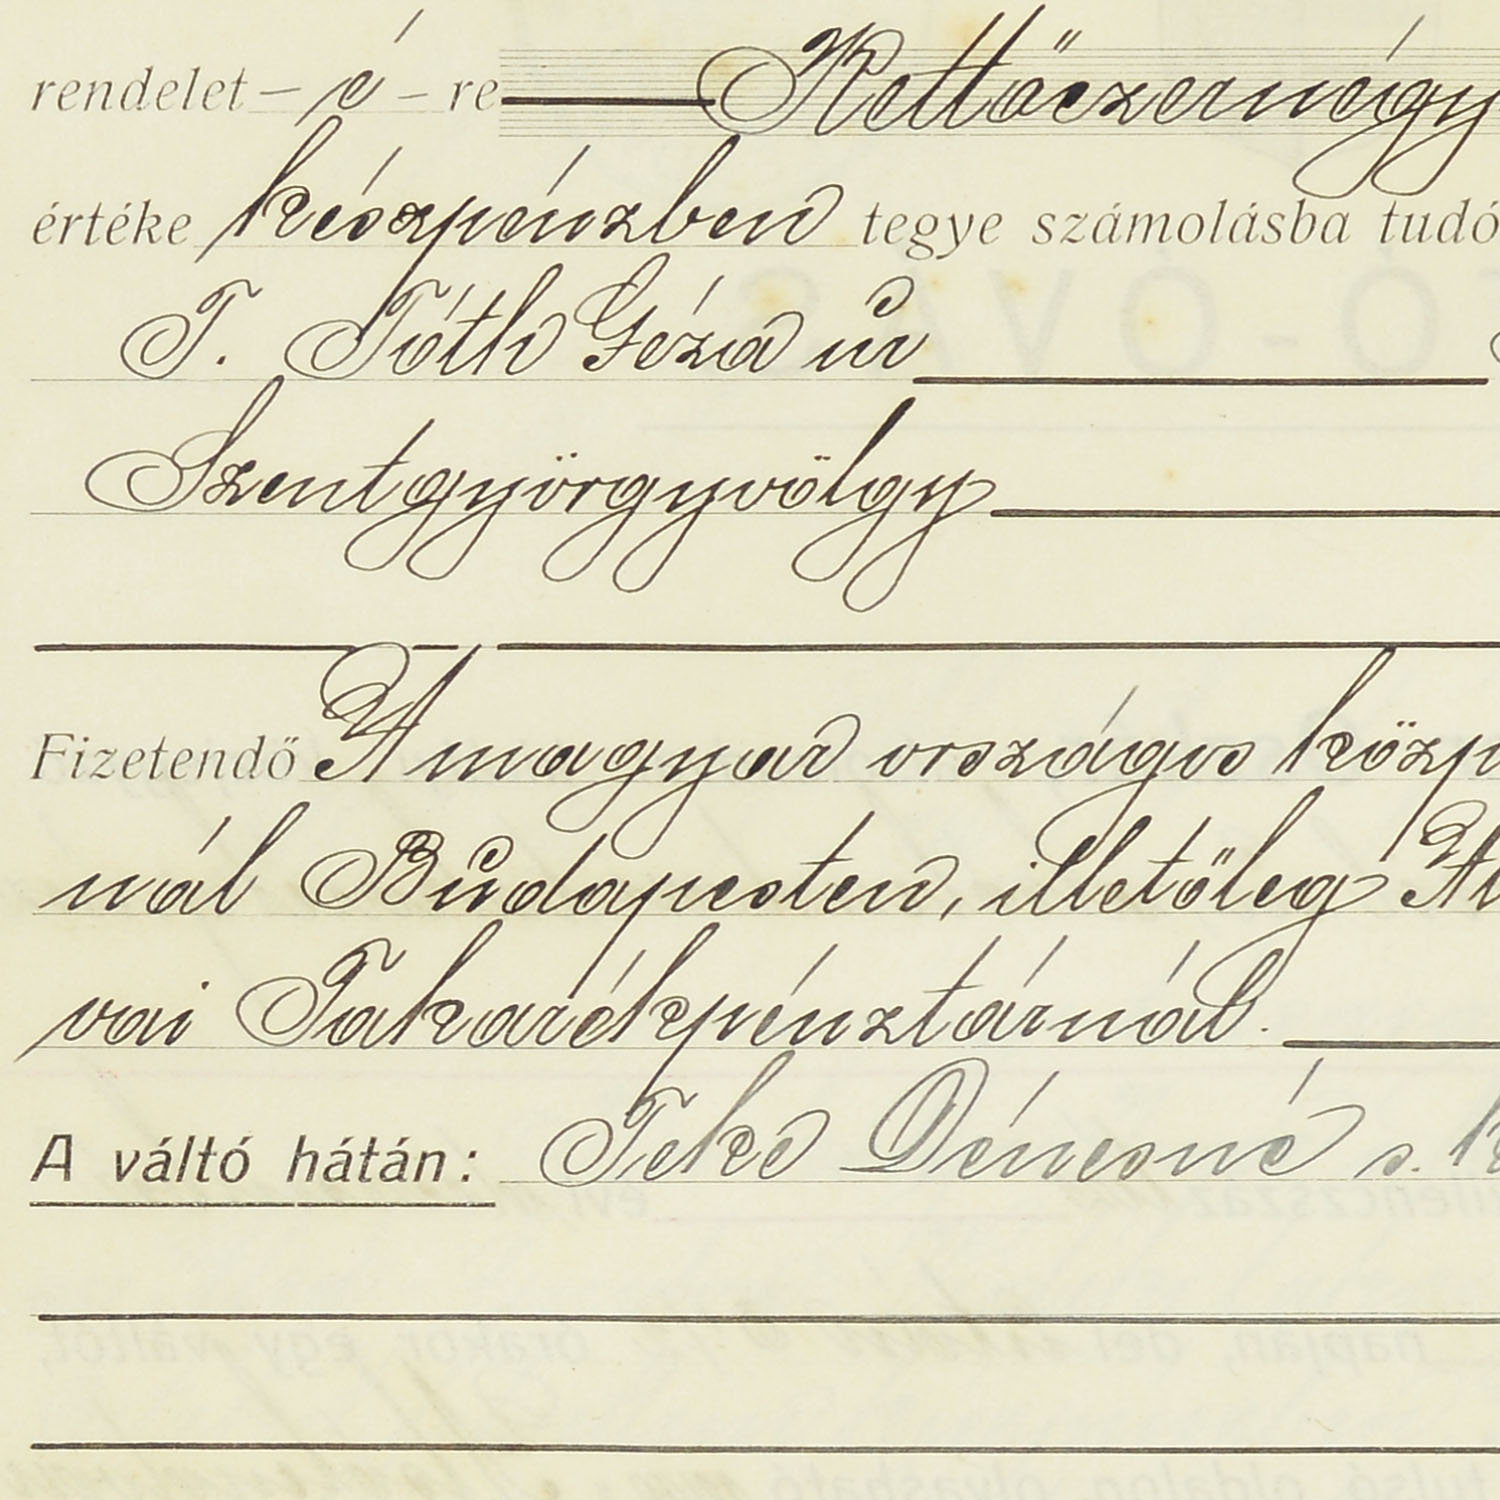 rendelet – é – re Kettőezernégy
értéke készpénzben tegye számolásba tudó
T. Tóth Géza úr
Szentgyörgyvölgy
Fizetendő A magyar országos közp
nál Budapesten, illetőleg Al
vai Takarékpénztárnál.
A váltó hátán: Teke Dénesné s. k